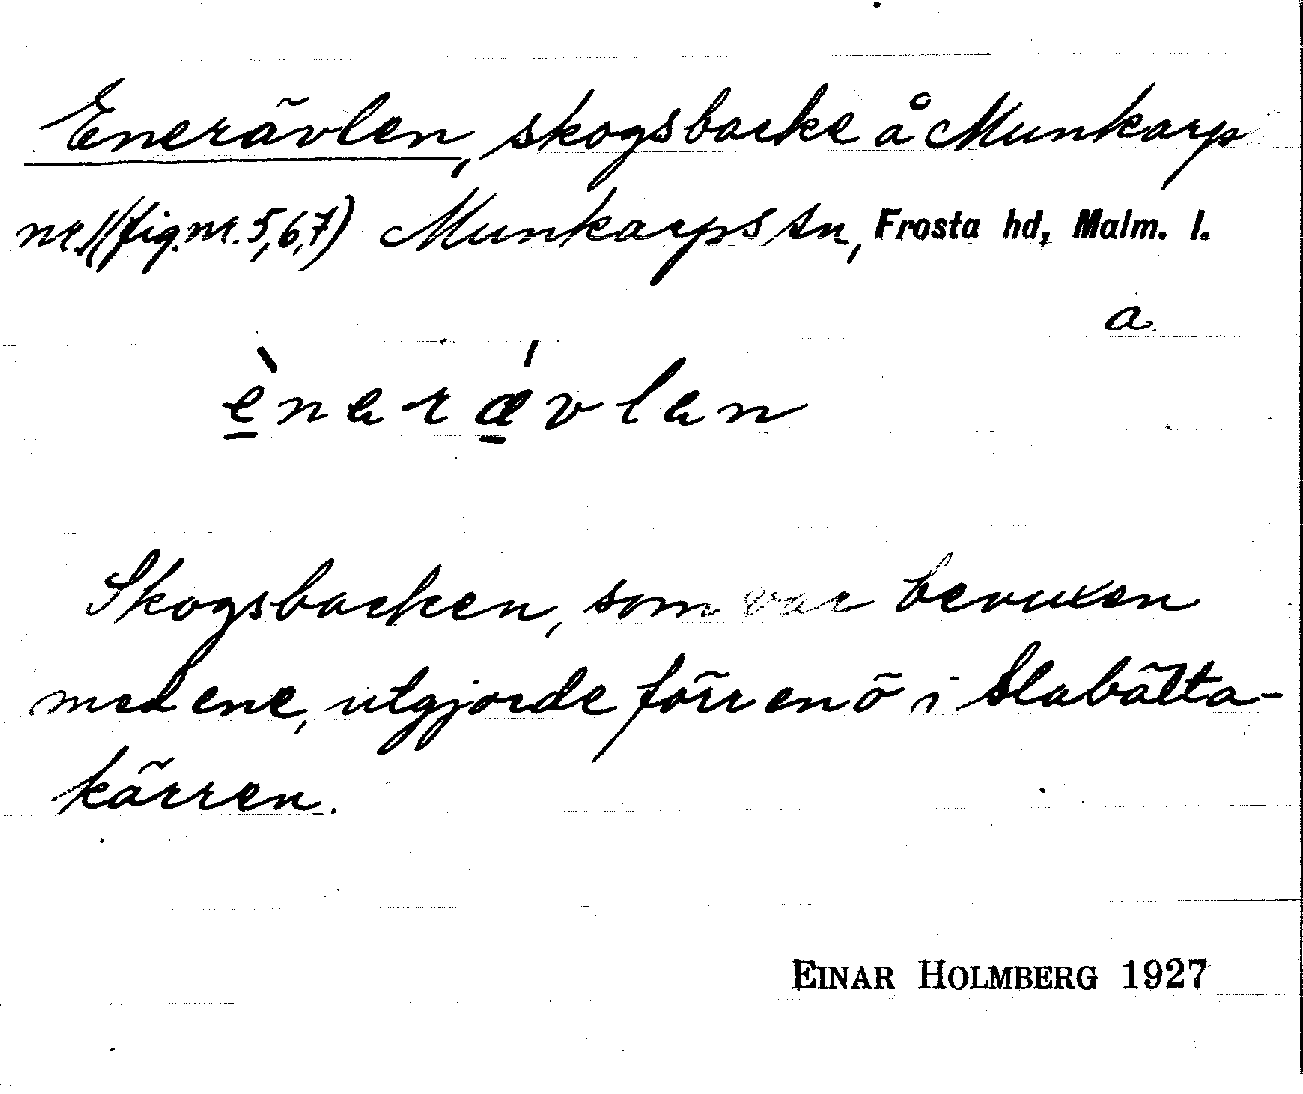 Enerävlen, skogsbacke å Munkarp
nr.1 (fig.nr. 5,6,7) Munkarps sn, Frosta hd, Malm. l.
a
ènərǽvlən
Skogsbacken, som var bevuxen
med ene, utgjorde förr en ö i Slabälta-
kärren.
EINAR HOLMBERG 1927